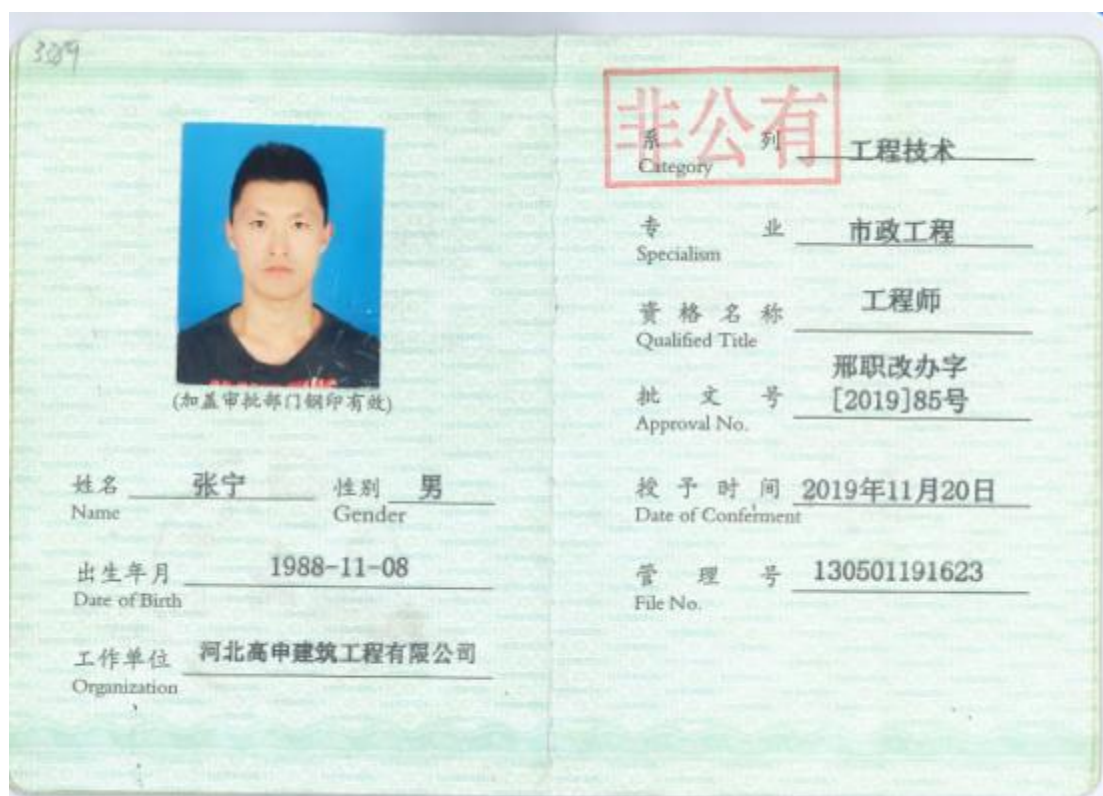 3389
(加盖审批部门钢印有效)
姓名 张宁 性别 男
Name Gender
出生年月 1988-11-08
Date of Birth
工作单位 河北高申建筑工程有限公司
Organization
非公有
系列 工程技术
Category
专业 市政工程
Specialism
资格名称 工程师
Qualified Title
邢职改办字
批文号 [2019]85号
Approval No.
授予时间 2019年11月20日
Date of Conferment
管理号 130501191623
File No.